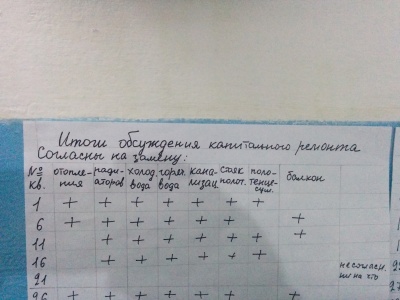 Итоги обсуждения капитального ремонта
Согласны на замену:
№ кв. отопле-ния ради-аторов холод. вода горяч. вода кана-лизац стояк полот. поло-тенце-суш. балкон
1 + + + + + + +
6 + + + + + + +
11 + + + + + + +
16 + + + + + +
несогласн. ни на что
21
26 + + + + + + +